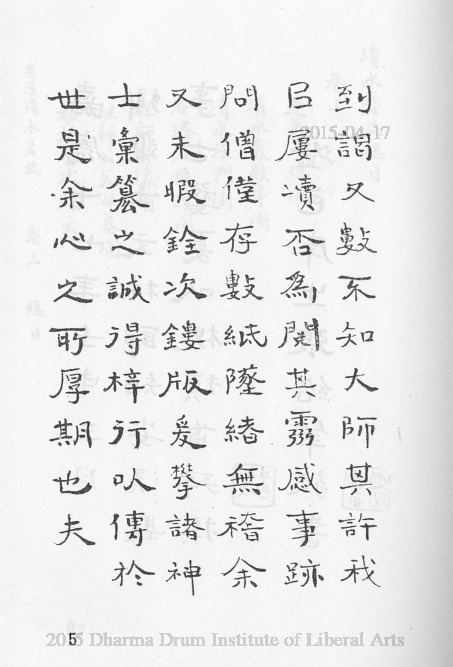 到謁又數不知大師其許我
㠯屢瀆否爲閱其靈感事跡
問僧僅存數紙墜緒無稽余
又未暇銓次鏤版爰攀諸神
士彙纂之誠得梓行以傳於
世是余心之所厚期也夫
5
2015-04-17
2015 Dharma Drum Institute of Liberal Arts